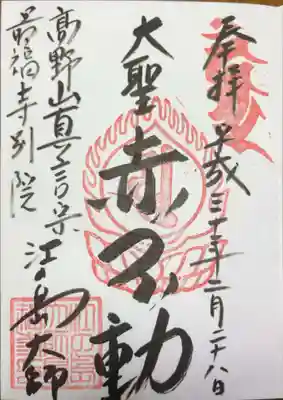 奉拝 平成三十年二月二十八日
大聖 赤不動
高野山真言宗 江の島大師
最福寺別院